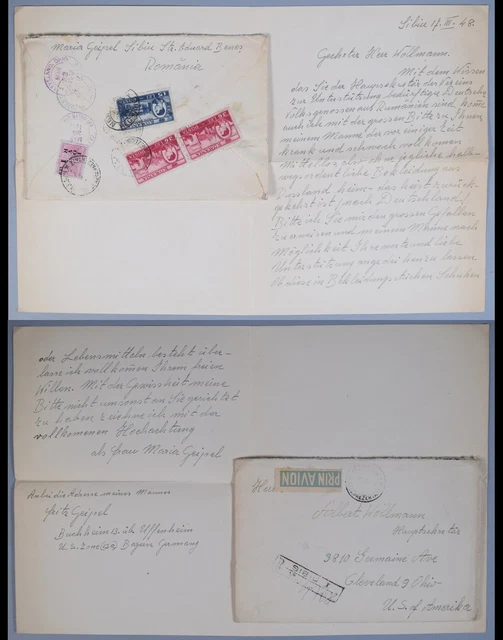 Maria Geipel Sibiu Str. Eduard Benes
România
Sibiu 17. III. 48.
Geehrter Herr Wollmann.
Mit dem Wissen
das Sie der Hauptsekretär der Vereins
zur Unterstützung bedürftige Deutsche
Volksgenossen aus Rumänien sind, 
auch ich mit der grossen Bitte zu Ihnen
meinem Manne der vor einiger Zeit
krank und schwach vollkommen
Mittellos, also ohne jegliche
ordentliche Bekleidung aus
Russland heim - das heist zurück-
gekehrt ist, nach Deutschland.
Bitte ich Sie mir den grossen Gefallen
zu erweisen und meinem Manne nach
Möglichkeit Ihre und liebe
Unterstützung angedeihen zu lassen.
Ob diese in Bekleidungstücken Schuhen
oder Lebensmitteln besteht über-
lasse ich vollkommen Ihrem freien
Willen. Mit der Gewissheit meine
Bitte nicht umsonst an Sie gerichtet
zu haben zeichne ich mit der
vollkommenen Hochachtung
als frau Maria Geipel
Anbei die Adresse meines Mannes
Fritz Geipel
Buchheim 13. üb. Uffenheim
U.S. Zone Bayern Germany
PRIN AVION
Herr
Albert Wollmann
Hauptsekretär
3810 Germaine Ave
Cleveland 9 Ohio
U.S. of Amerika